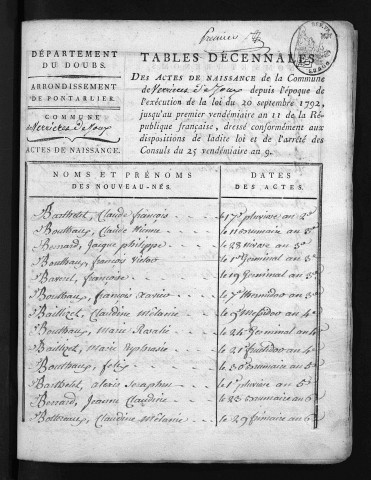 Premier
DÉPARTEMENT
DU DOUBS.
ARRONDISSEMENT
DE PONTARLIER.
COMMUNE
de Verrieres de Joux
ACTES DE NAISSANCE.
TABLES DÉCENNALES
DES ACTES DE NAISSANCE de la Commune
de Verrieres de Joux depuis l'époque de
l'exécution de la loi du 20 septembre 1792,
jusqu'au premier vendémiaire an 11 de la Ré-
publique française, dressé conformément aux
dispositions de ladite loi et de l'arrêté des
Consuls du 25 vendémiaire an 9.
NOMS ET PRÉNOMS
DES NOUVEAU-NÉS.
DATES
DES ACTES.
Barthelet, Claude françois le 17 pluviose an 2
Claude le 11 brumaire an 3
jacque philippe le 23 Nivose an 3
françois le 1er Germinal an 3
françoise le 19 Germinal an 3
françois Xavier le 7 Thermidor an 3
Claudine Mélanie le 9 Messidor an 4
marie Rosalie le 24 Germinal an 4
marie le 21 fructidor an 4
felix le 30 Brumaire an 5
Barthelet, alexis Seraphin le 1er pluviose an 5
Jeanne Claudine le 23 Brumaire an 5
Claudine Mélanie le 29 frimaire an 6